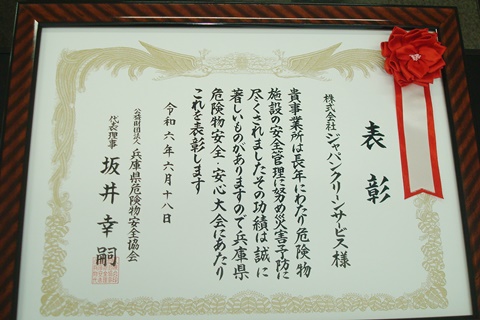 表彰
株式会社ジャパンクリーンサービス様
貴事業所は長年にわたり危険物
施設の安全管理に努め災害予防に
尽くされましたその功績は誠に
著しいものがありますので兵庫県
危険物安全・安心大会にあたり
これを表彰します
令和六年六月十八日
公益財団法人 兵庫県危険物安全協会
代表理事 坂井幸嗣